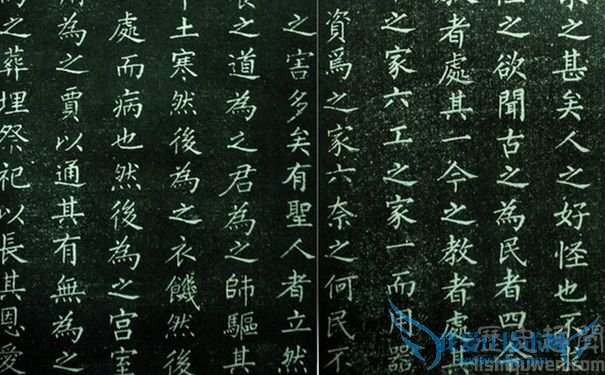 之甚矣人之好怪也不
怪之欲聞古之為民者四今
者處其一今之教者處其
之家六工之家一而用器
資爲之家六奈之何民不
之害多矣有聖人者立然
之道為之君為之師驅其
土寒然後為之衣饑然後
處而病也然後為之宮室
為之賈以通其有無為之
之葬埋祭祀以長其恩愛